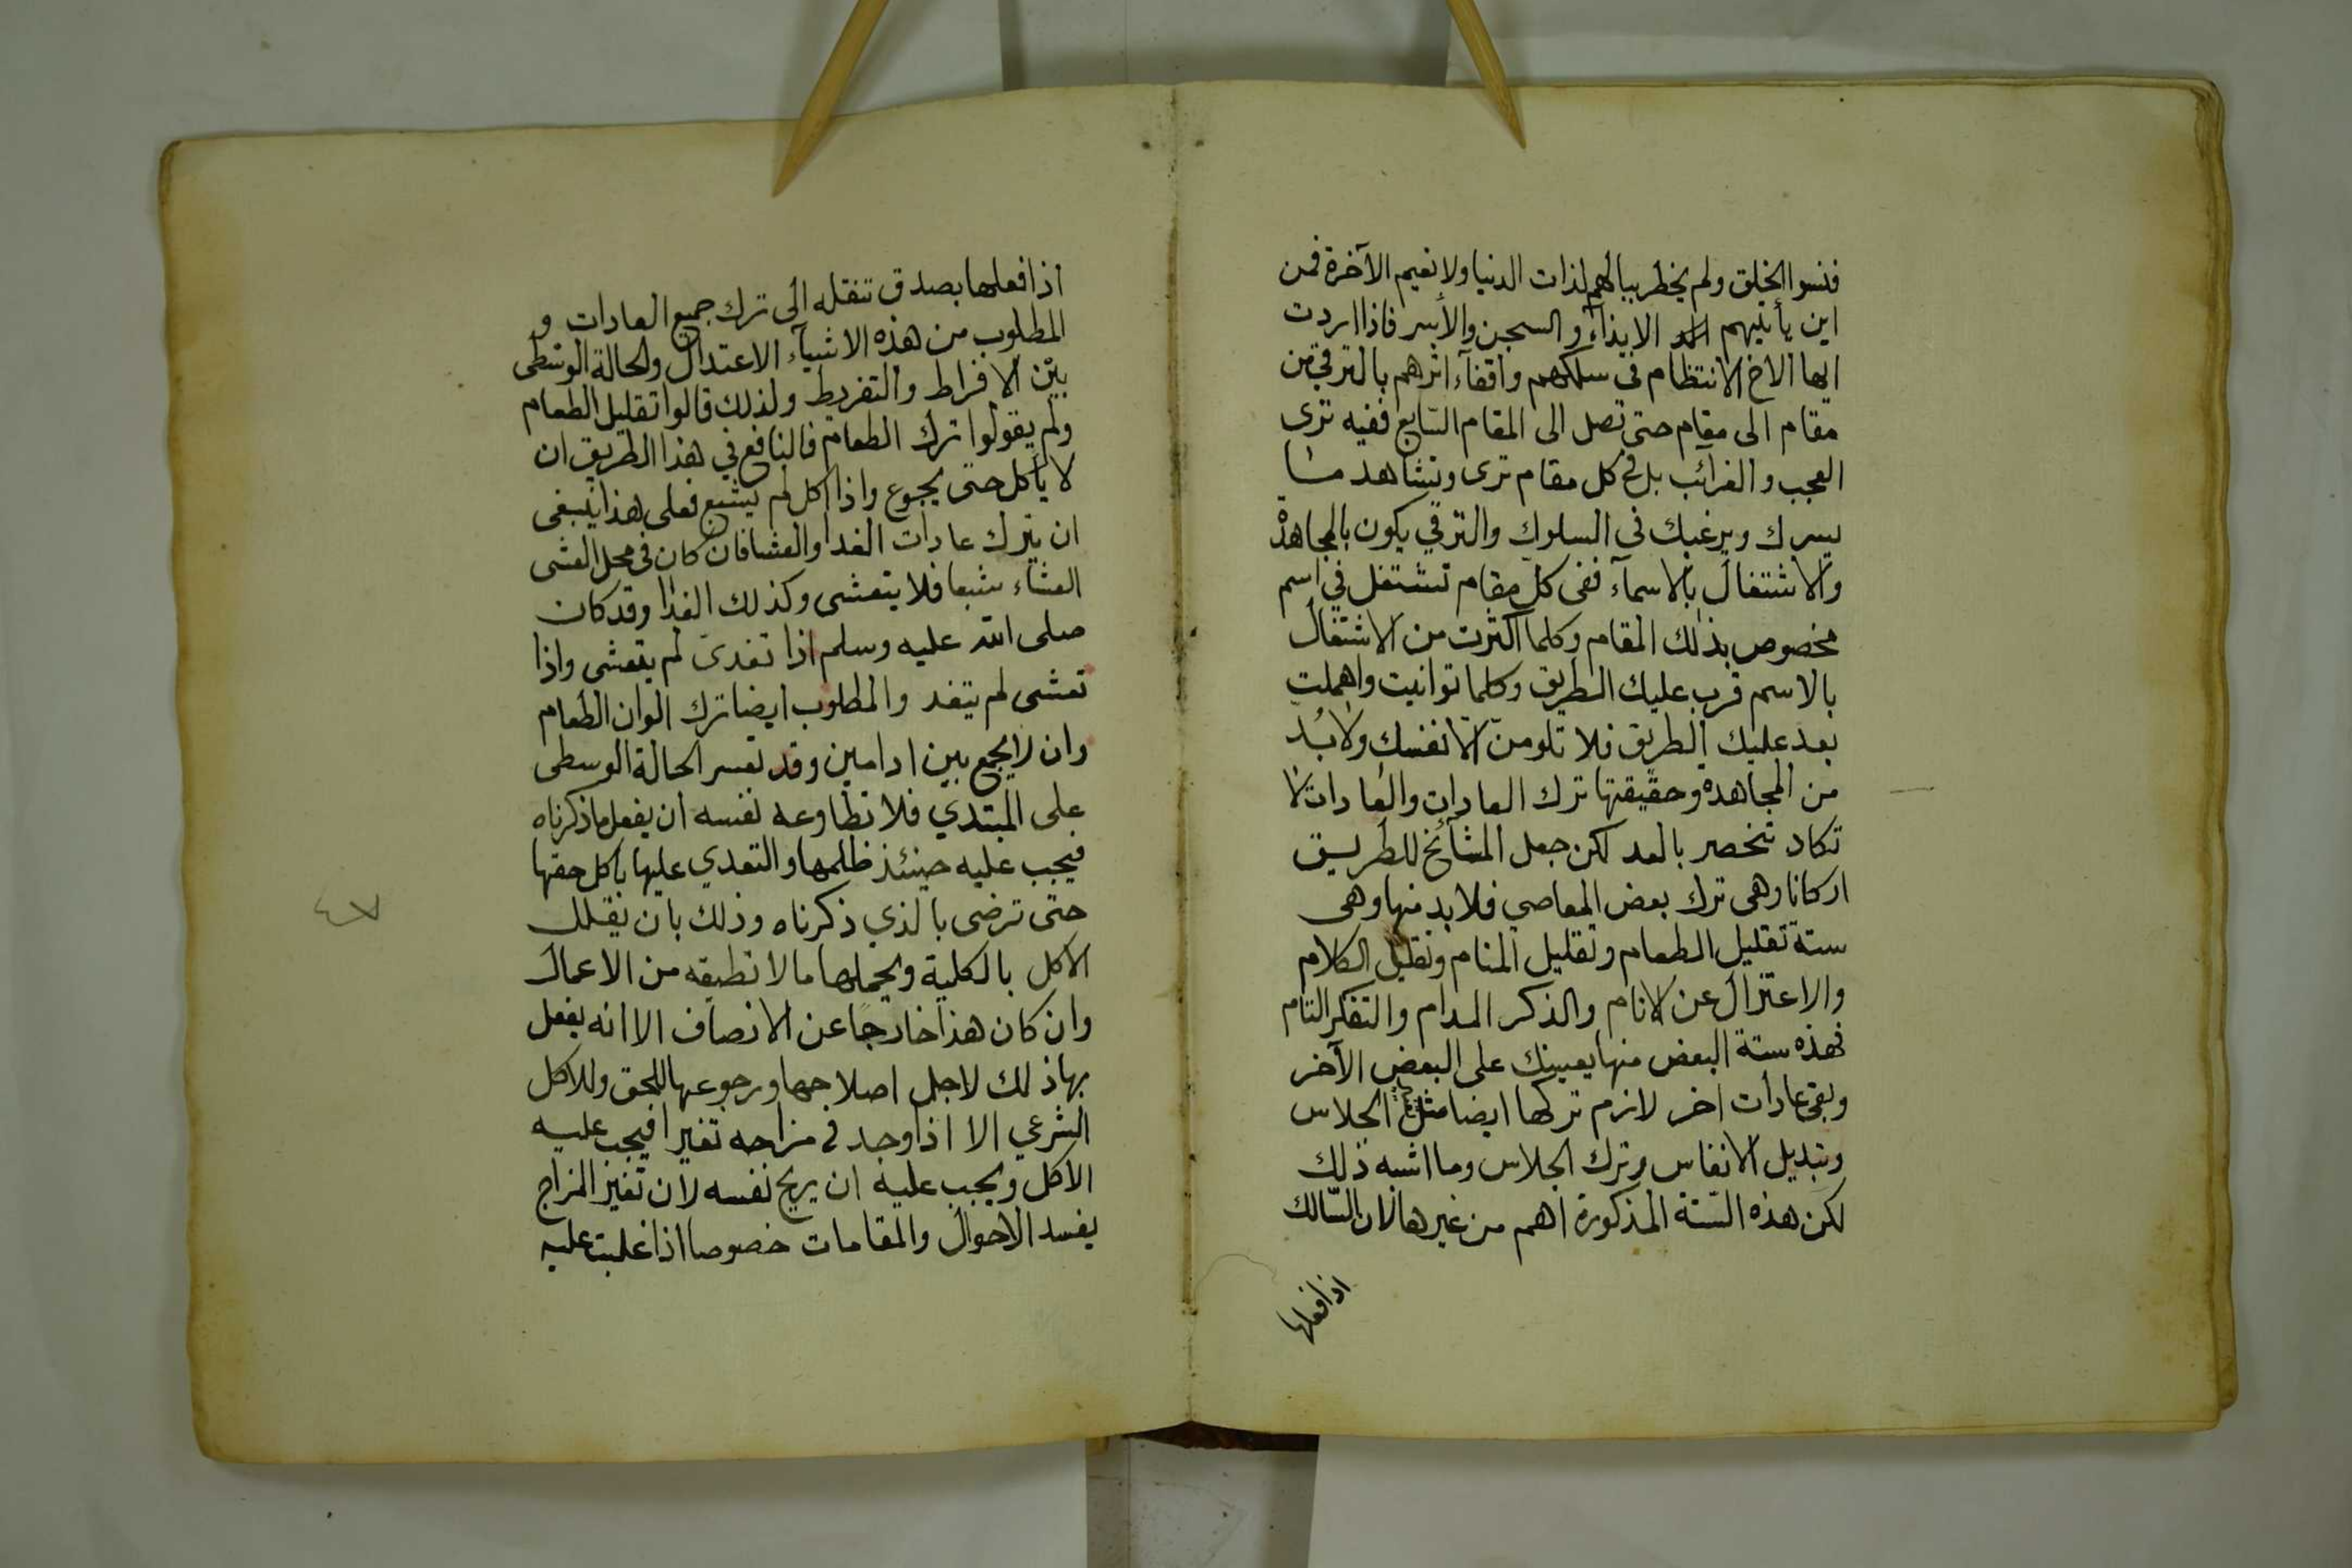 فنسوا الخلق ولم يخطر ببالهم لذات الدنيا ولا نعيم الآخرة فمن
اين يأتيهم الايذاء والسجن والأسر فاذا اردت
ايها الاخ الانتظام في سلكهم واقفآء اثرهم بالترقي من
مقام الى مقام حتى تصل الى المقام السّابع ففيه ترى
العجب والغرائب بل في كل مقام ترى وتشاهد ما
يسرك ويرغبك في السلوك والترقي يكون بالمجاهدة
والاشتغال بالاسمآء ففى كل مقام تشتغل في اسم
مخصوص بذلك المقام وكلما اكثرت من الاشتغال
بالاسم قرب عليك الطريق وكلما توانيت واهملت
بعد عليك الطريق فلا تلومنّ الا نفسك ولا بُدّ
من المجاهدة وحقيقتها ترك العادات والعادات لا
تكاد تنحصر بالعد لكن جعل المشآئخ للطريق
اركانا وهى ترك بعض المعاصي فلا بد منها وهى
ستة تقليل الطعام وتقليل المنام وتقليل الكلام
والاعتزال عن الانام والذكر المدام والتفكر التام
فهذه ستة البعض منها يعينك على البعض الآخر
وبقى عادات اخر لازم تركها ايضا مثل الجلاس
وتبديل الانفاس وترك الجلاس وما اشبه ذلك
لكن هذه السّتة المذكورة اهم من غيرها لان السّالك
اذا فعلها
اذا فعلها بصدق تنقله الى ترك جميع العادات و
المطلوب من هذه الاشيآء الاعتدال والحالة الوسطى
بين الافراط والتفريط ولذلك قالوا تقليل الطعام
ولم يقولوا ترك الطعام فالنافع في هذا الطريق ان
لا يأكل حتى يجوع واذا اكل لم يشبع فعلى هذا ينبغى
ان يترك عادات الغدا والعشا فان كان فى محل العشى
العشاء شبعا فلا يتعشى وكذلك الغدا وقد كان
صلى الله عليه وسلم اذا تغدى لم يتعشى واذا
تعشى لم يتغد والمطلوب ايضا ترك الوان الطعام
وان لا يجمع بين ادامين وقد تعسر الحالة الوسطى
على المبتدي فلا تطاوعه نفسه ان يفعل ما ذكرناه
فيجب عليه حينئذ ظلمها والتعدي عليها باكل حقها
حتى ترضى بالذي ذكرناه وذلك بان يقلل
الاكل بالكلية ويحملها ما لا تطيقه من الاعمال
وان كان هذا خارجًا عن الانصاف الا انه يفعل
بها ذلك لاجل اصلاحها ورجوعها للحق وللاكل
الشرعي الا اذا وجد في مزاجه تغيرا فيجب عليه
الاكل ويجب عليه ان يريح نفسه لان تغيز المزاج
يفسد الاحوال والمقامات خصوصا اذا غلبت عليه